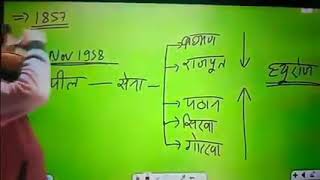 ⇒ 1857
Nov 1958
पील — सेना
ब्राह्मण
राजपूत
पठान
सिखा
गोरखा
ह्यूरोज